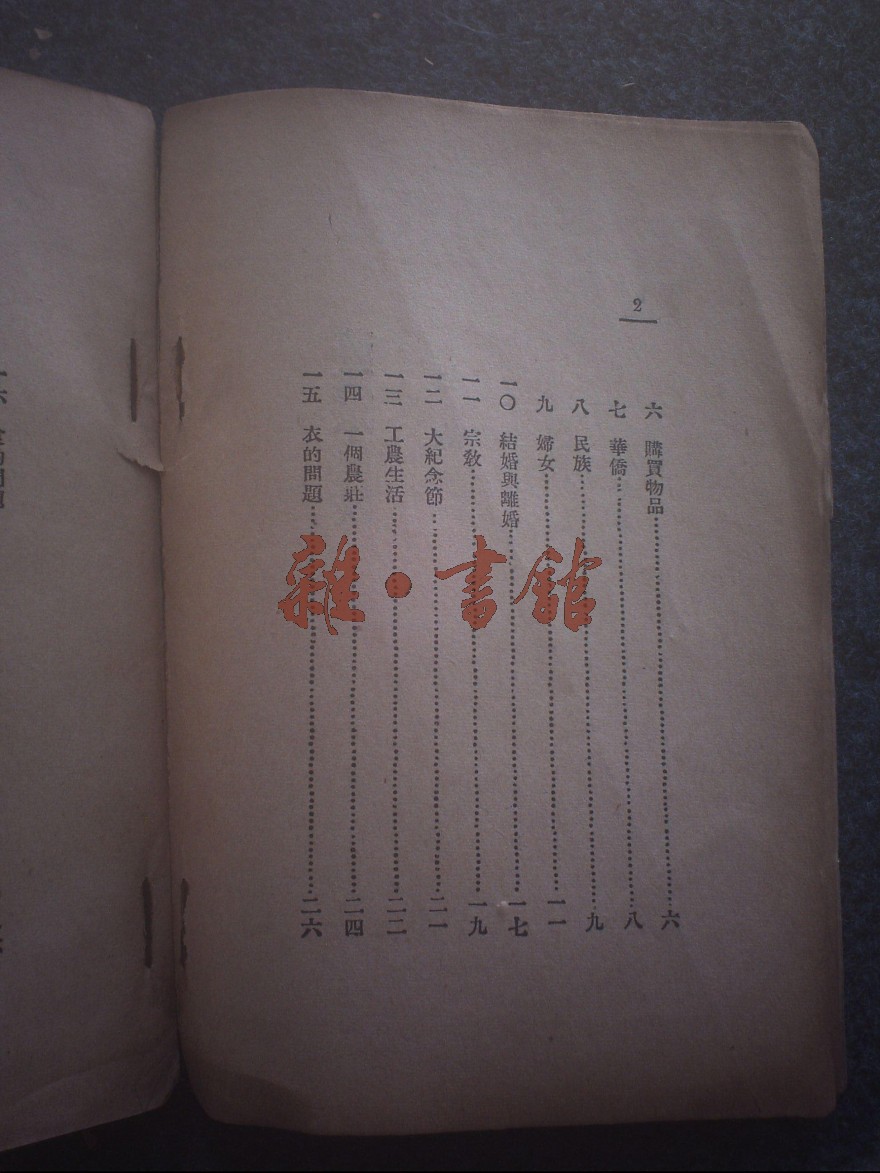 2
六 購買物品……六
七 華僑……八
八 民族……九
九 婦女……一一
一〇 結婚與離婚……一七
一一 宗教……一九
一二 大紀念節……二一
一三 工農生活……二二
一四 一個農莊……二四
一五 衣的問題……二六
雜·書館